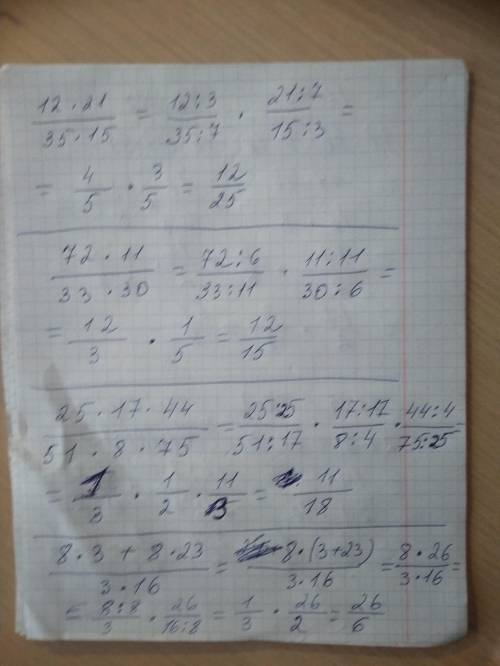 12·21/35·15 = 12:3/35:7 · 21:7/15:3 =
= 4/5 · 3/5 = 12/25
72·11/33·30 = 72:6/33:11 · 11:11/30:6 =
= 12/3 · 1/5 = 12/15
25·17·44/51·8·75 = 25:25/51:17 · 17:17/8:4 · 44:4/75:25 =
= 1/3 · 1/2 · 11/3 = 11/18
8·3+8·23/3·16 = 8·(3+23)/3·16 = 8·26/3·16 =
= 8:8/3 · 26/16:8 = 1/3 · 26/2 = 26/6